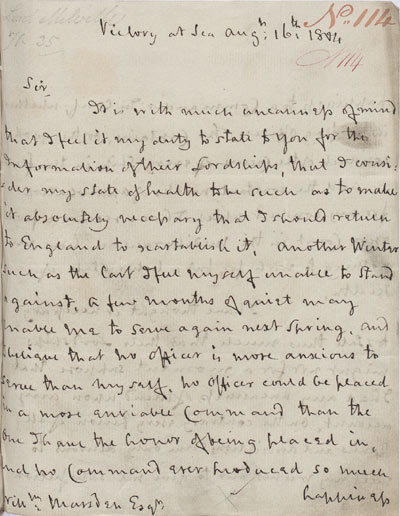 Lord Melville
No. 114
114
35
Victory at Sea Augst: 16th: 1804
Sir
It is with much uneasiness of mind
that I feel it my duty to state to you for the
Information of their Lordships, that I consi-
der my state of health to be such as to make
it absolutely necessary that I should return
to England to reestablish it, another Winter
such as the last I feel myself unable to stand
against, a few months of quiet may
enable me to serve again next Spring, and
I believe that no officer is more anxious to
serve than myself, no officer could be placed
in a more enviable Command than the
one I have the honor of being placed in,
and no Command ever produced so much
Willm. Marsden Esqr.
happiness